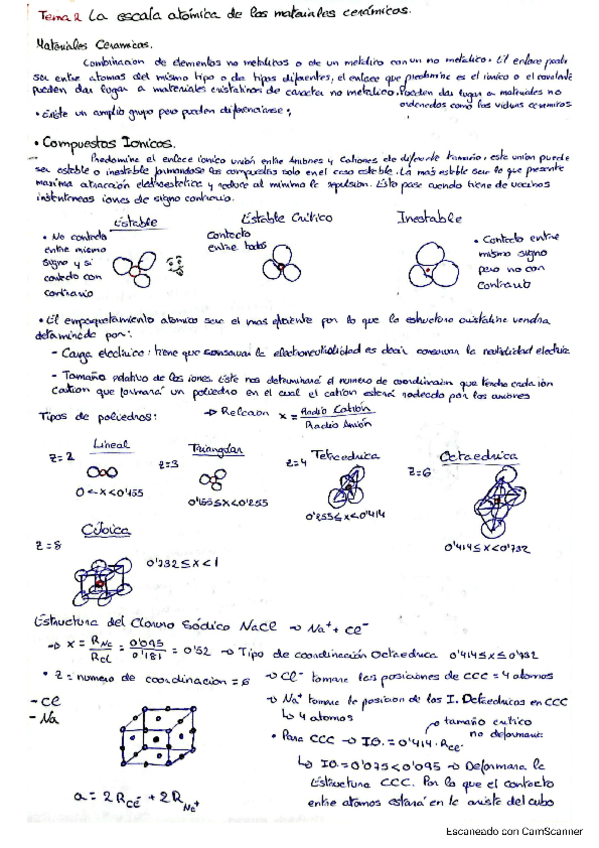 Tema 2 La escala atómica de los materiales cerámicos.
Materiales Ceramicos.
Combinacion de elementos no metalicos o de un metalico con un no metalico. El enlace podra
ser entre atomos del mismo tipo o de tipos diferentes, el enlace que predomine es el ionico o el covalente
pueden dar lugar a materiales cristalinos de caracter no metalico. Pueden dar lugar a materiales no
ordenados como los vidrios ceramicos
• Existe un amplio grupo pero pueden diferenciarse:
• Compuestos Ionicos.
Predomine el enlace ionico unión entre Aniones y Cationes de diferente tamaño, esta union puede
ser estable o inestable formandose los compuestos solo en el caso estable. La mas estable sera la que presente
maxima atraccion electroestatica y reduce al minimo la repulsion. Esto pasa cuando tiene de vecinos
iones de signo contrario.
Estable Estable Crítico Inestable
• No contacto
entre mismo
signo y si
contacto con
contrario
Contacto
entre todos
• Contacto entre
mismo signo
pero no con
contrario
• El empaquetamiento atomico sera el mas eficiente por lo que la estructura cristalina vendra
determinada por:
- Carga electrica: tiene que conservar la electroneutralidad es decir conservar la neutralidad electrica
- Tamaño relativo de los iones. Este nos determinará el numero de coordinacion que tendra cada ión
Cation que formará un poliedro en el cual el cation estará rodeado por los aniones
Tipos de poliedros: → Relcaon x = Radio Catión / Radio Anión
Z=2 Lineal
0<x<0'155
Z=3 Triangular
0'155≤x<0'255
Z=4 Tetraedrica
0'255≤x<0'414
Z=6 Octaedrica
0'414≤x<0'732
Z=8 Cúbica
0'732≤x<1
Estructura del Cloruro Sódico NaCl → Na⁺ + Cl⁻
→ x = R Na / R Cl = 0'095 / 0'181 = 0'52 → Tipo de coordinación Octaedrica 0'414≤x≤0'732
• Z = numero de coordinacion = 6 → Cl⁻ tomara las posiciones de CCC = 4 atomos
- Cl
- Na
→ Na⁺ tomara la posicion de los I. Octaedricos en CCC
↳ 4 atomos
tamaño critico
no deformante
• Para CCC → IO. = 0'414 · R Cl⁻
↳ IO. = 0'075 < 0'095 → Deformara la
Estructura CCC. Por lo que el contacto
entre atomos estará en la arista del cubo
a = 2R Cl⁻ + 2R Na⁺
Escaneado con CamScanner